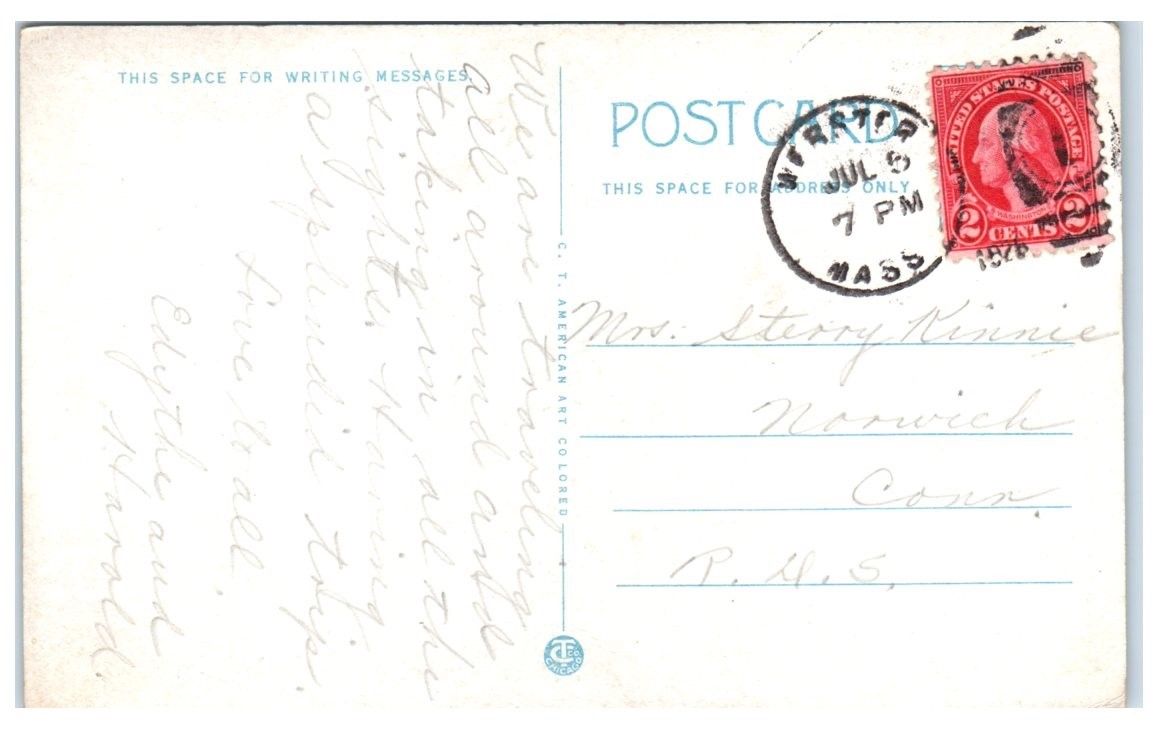 THIS SPACE FOR WRITING MESSAGES.
We are traveling
all around and
taking in all the
sights. Having
a splendid trip.
Love to all.
Edythe and
Harold.
C. T. AMERICAN ART COLORED
CTCO
CHICAGO
POSTCARD
THIS SPACE FOR ADDRESS ONLY
WEBSTER
JUL
7 PM
MASS
UNITED STATES POSTAGE
WASHINGTON
2 CENTS 2
Mrs. Sterry Kinnie
Norwich
Conn.